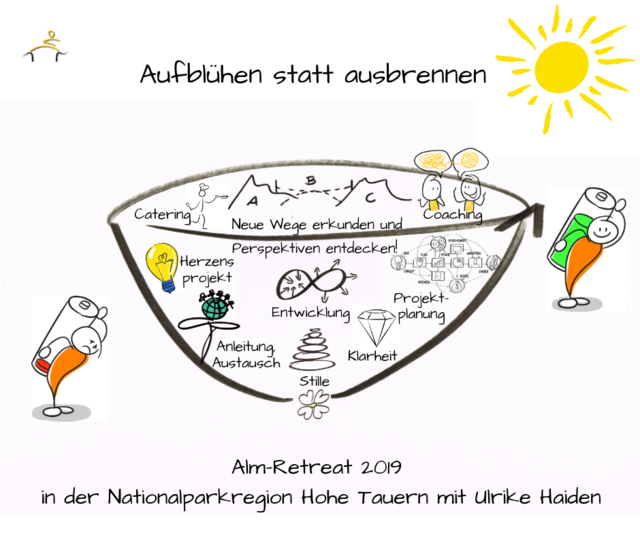 Aufblühen statt ausbrennen
A
B
C
Catering
Neue Wege erkunden und
Coaching
Perspektiven entdecken!
Herzens
projekt
Entwicklung
Projekt-
planung
Anleitung,
Austausch
Klarheit
Stille
Alm-Retreat 2019
in der Nationalparkregion Hohe Tauern mit Ulrike Haiden